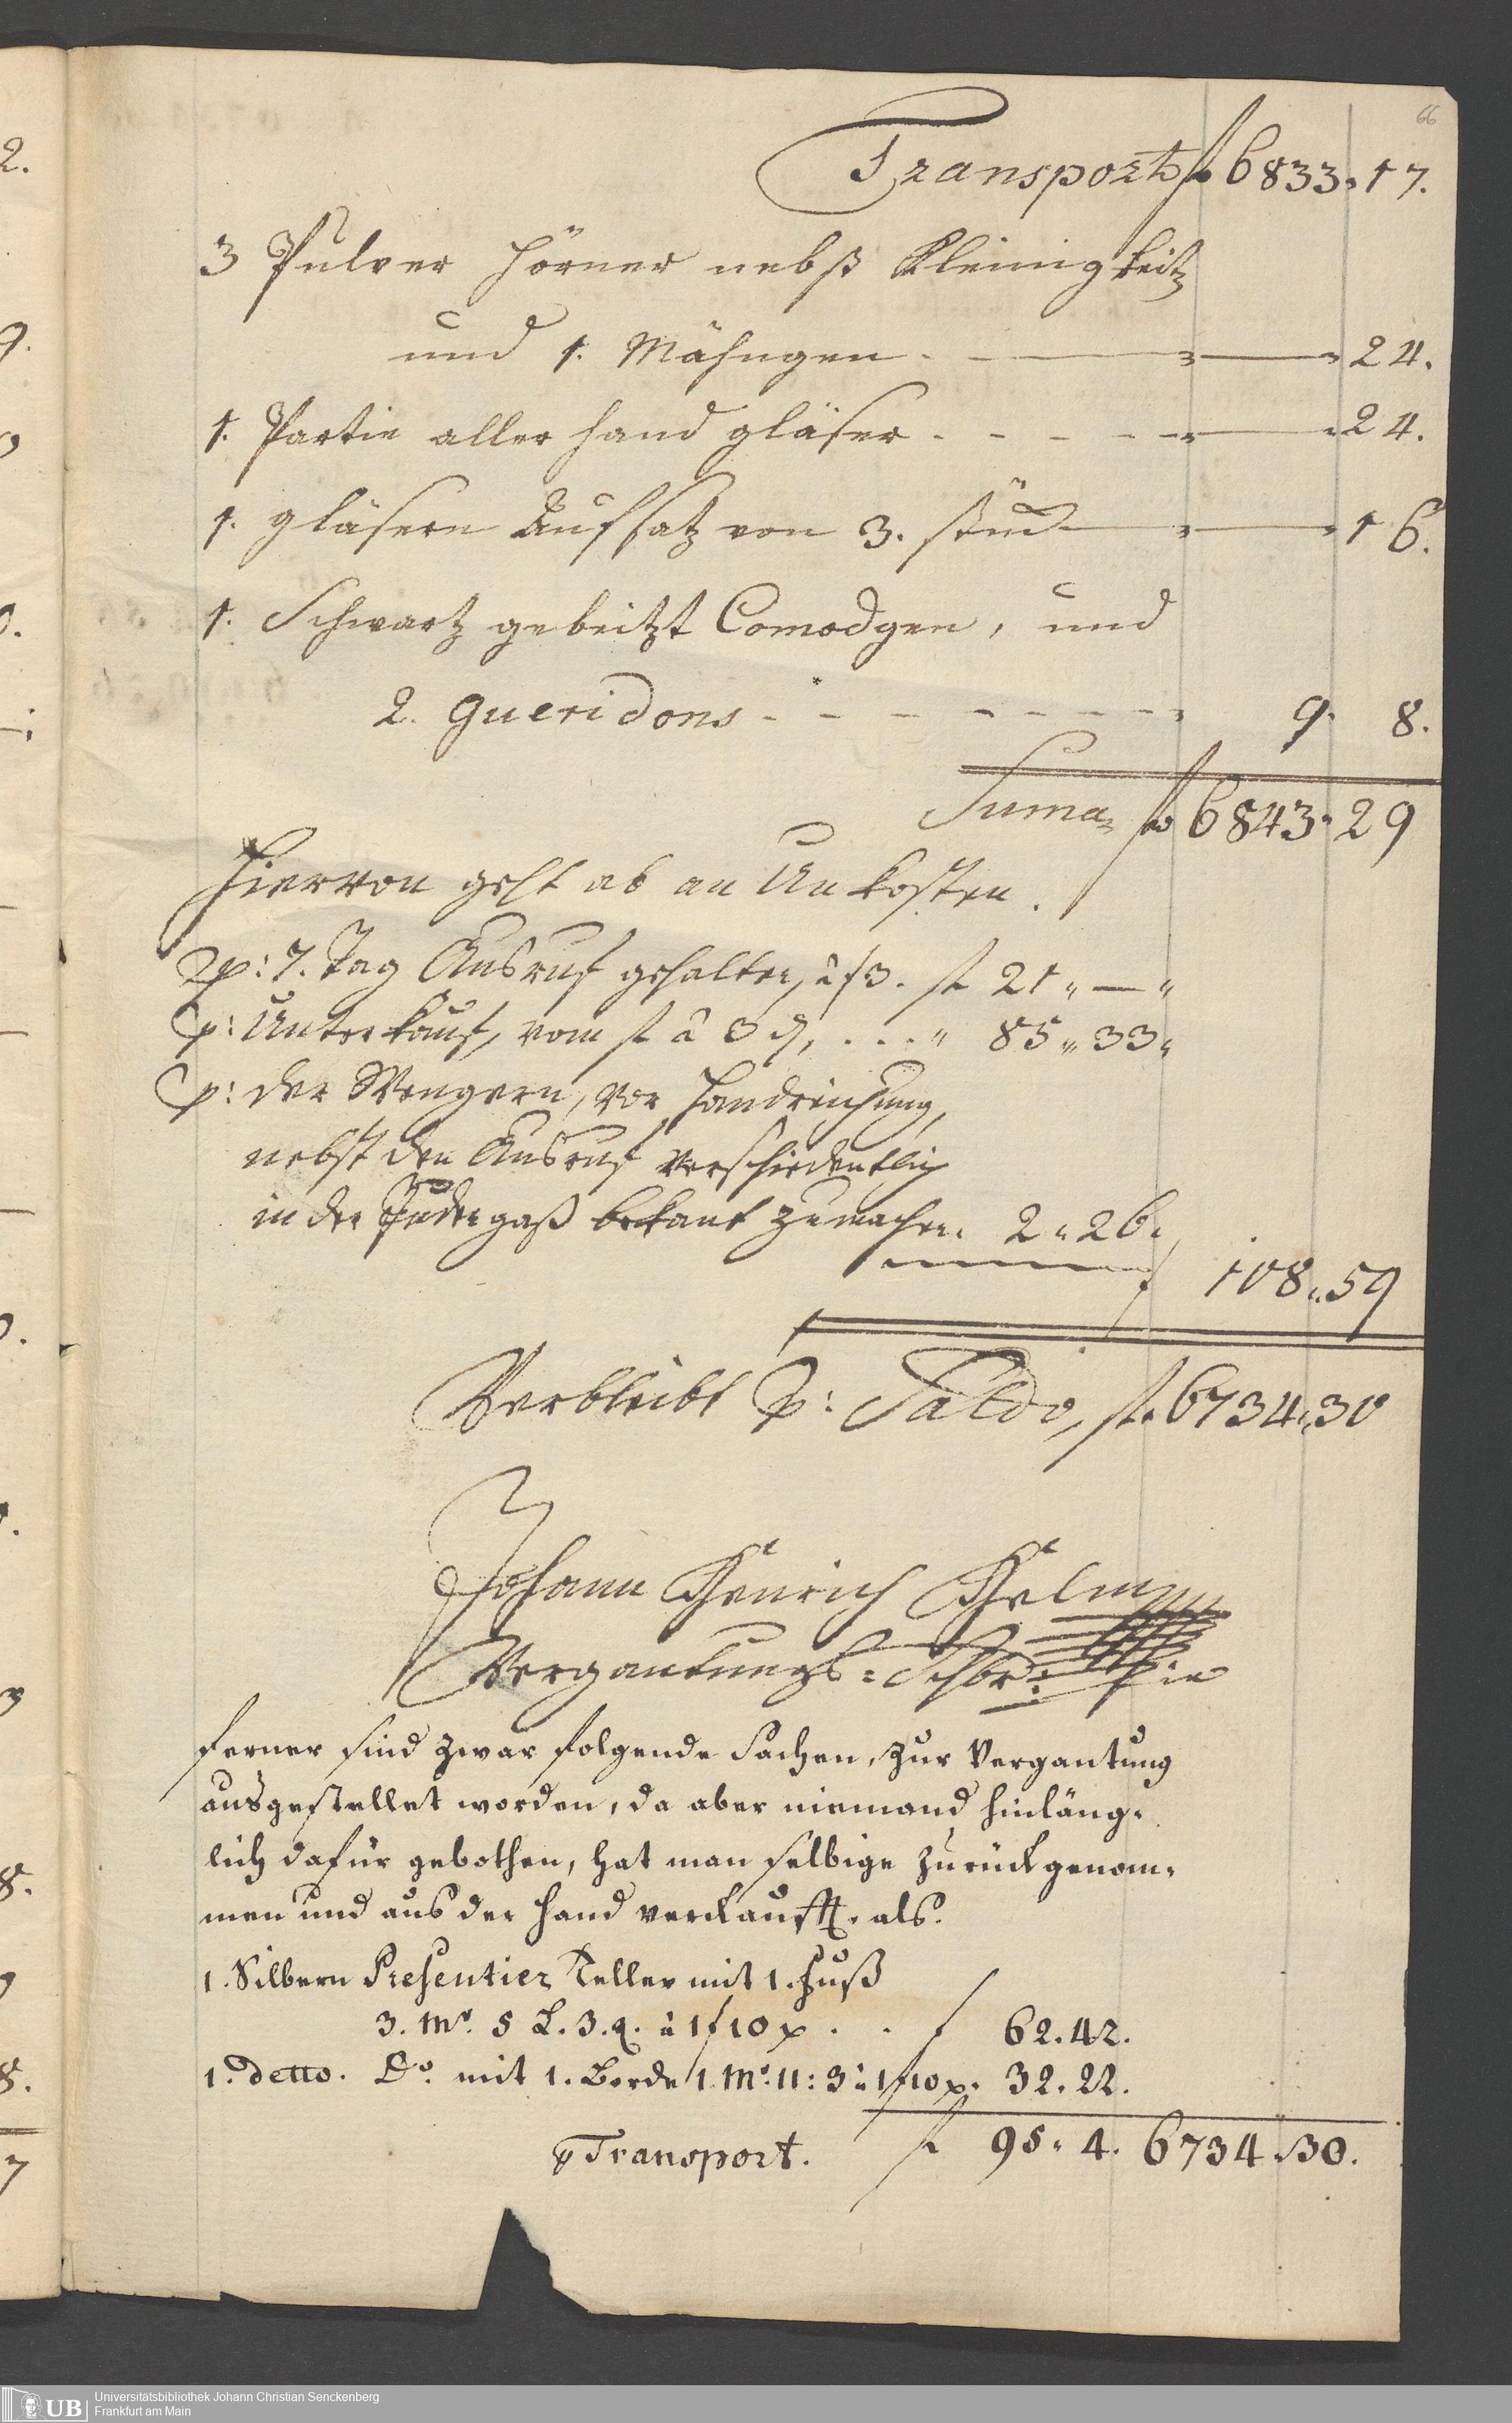 66
Transport f 6833. 17.
3 Pulver Hörner nebst Kleinigkeit
und 1. Mähngen. 24.
1. Partie aller hand gläser 24.
1. gläsern Aufsatz von 3. stück 16.
1. Schwartz gebeitzt Comodgen, und
2. Gueridons 9. 8.
Suma f 6843. 29
Hiervon geht ab an Unkosten.
p: 7. Tag Ausruf gehalten, à f 3. f 21 " — "
p: Unterkauf, vom f à 3 ₰, . . . " 85 " 33 "
p: der, vor Handreichung,
nebst den Ausruf verschiedentlich
in der Judengaß bekant zumachen. 2 " 26 "
f 108 " 59
Verbleibt p: Saldo, f 6734 " 30
Johann Henrich Helm
Vergantungs=Schbr:
ferner sind zwar folgende Sachen, zur Vergantung
ausgestellet worden, da aber niemand hinläng-
lich dafür gebothen, hat man selbige zurückgenom-
men und aus der Hand verkaufft. als.
1. Silbern Presentier Teller mit 1. Fuß
3. Mr. 5 L. 3. q. à 1 f 10 x . . f 62. 42.
1. detto. Do. mit 1. Borde 1. Mr. 11: 3 à 1 f 10 x. 32. 22.
Transport. f 95. 4. 6734. 30.
2.
9.
0.
8.
9
8.
7
UB
Universitätsbibliothek Johann Christian Senckenberg
Frankfurt am Main